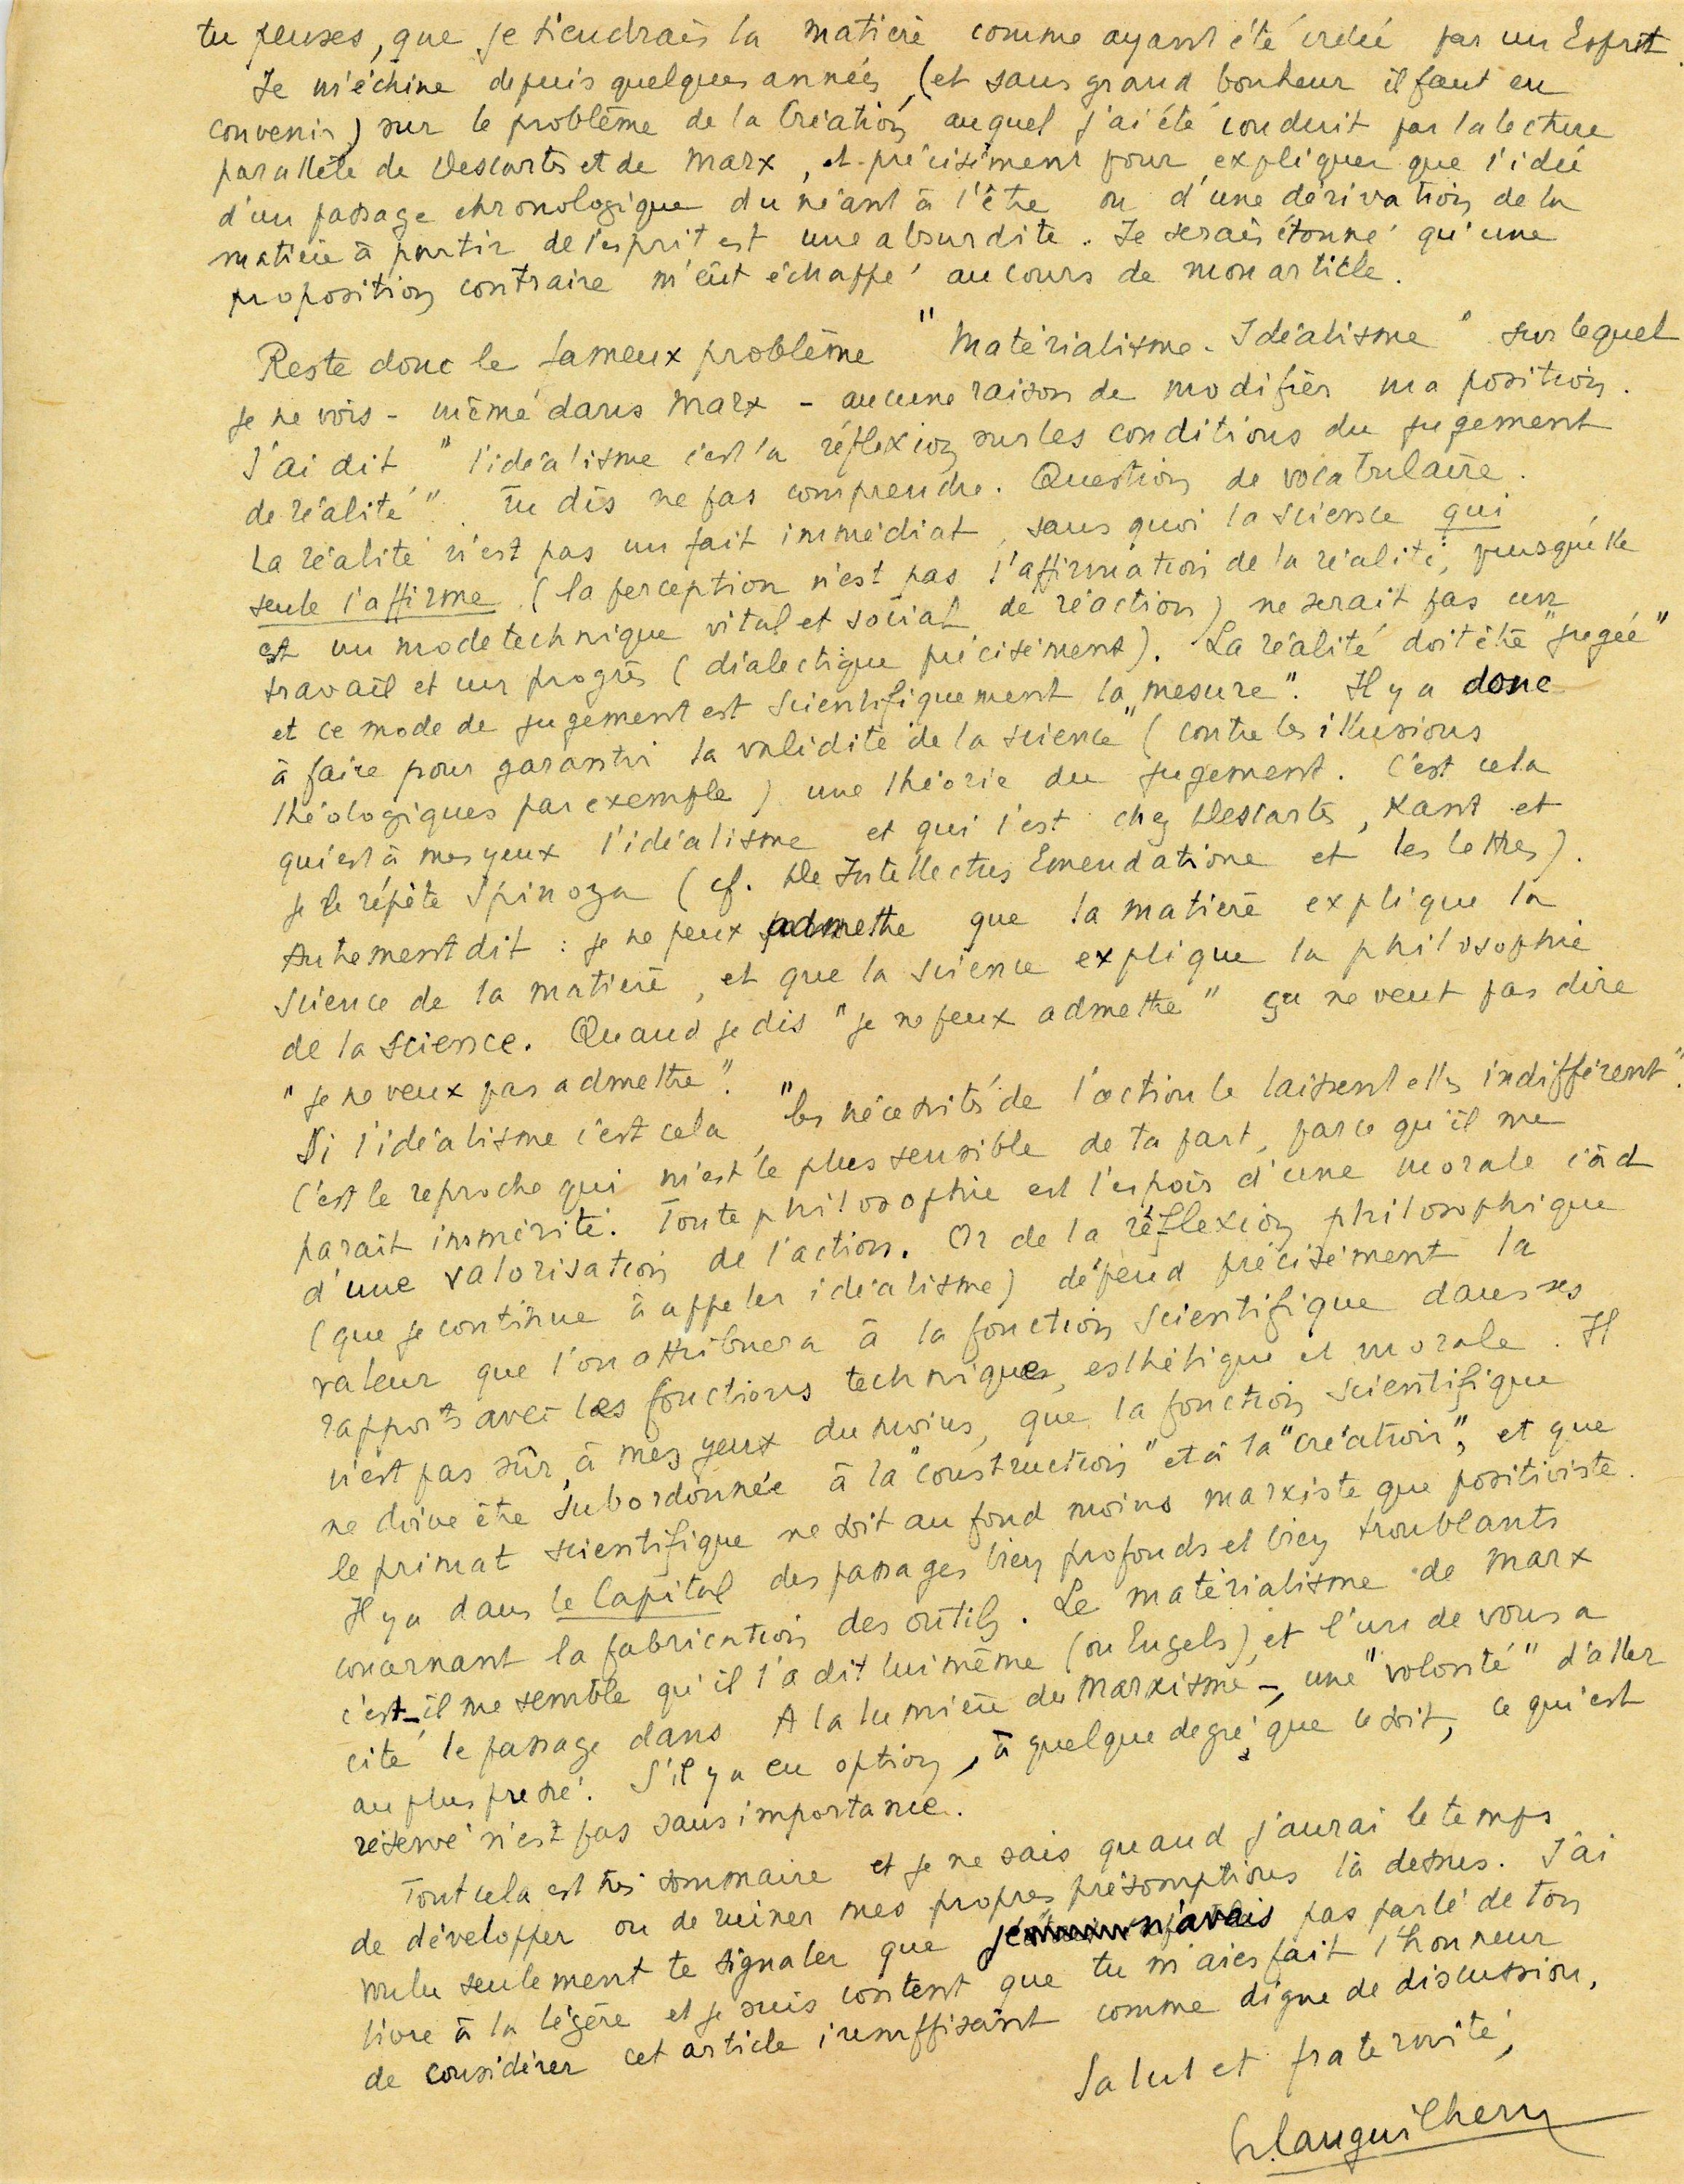 tu penses, que je tiendrais la matière comme ayant été créée par un Esprit.
Je m'échine depuis quelques années, (et sans grand bonheur il faut en
convenir) sur le problème de la Création, auquel j'ai été conduit par la lecture
parallèle de Descartes et de Marx, et précisément pour expliquer que l'idée
d'un passage chronologique du néant à l'être ou d'une dérivation de la
matière à partir de l'esprit est une absurdité. Je serais étonné qu'une
proposition contraire m'eût échappé au cours de mon article.
Reste donc le fameux problème "Matérialisme - Idéalisme" sur lequel
je ne vois - même dans Marx - aucune raison de modifier ma position.
J'ai dit "l'idéalisme c'est la réflexion sur les conditions du jugement
de réalité". Tu dis ne pas comprendre. Question de vocabulaire.
La réalité n'est pas un fait immédiat, sans quoi la science qui
seule l'affirme (la perception n'est pas l'affirmation de la réalité, puisqu'elle
est un mode technique vital et social de réaction) ne serait pas un
travail et un progrès (dialectique précisément). La réalité doit être "jugée"
et ce mode de jugement est scientifiquement la "mesure". Il y a donc
à faire pour garantir la validité de la science (contre les illusions
théologiques par exemple) une théorie du jugement. C'est cela
qui est à mes yeux l'idéalisme et qui l'est chez Descartes, Kant et
je le répète Spinoza (cf. De Intellectus Emendatione et les lettres).
Autrement dit : je ne peux admettre que la matière explique la
science de la matière, et que la science explique la philosophie
de la science. Quand je dis "je ne peux admettre" ça ne veut pas dire
"je ne veux pas admettre".
Si l'idéalisme c'est cela, "les nécessités de l'action le laissent elles indifférent".
C'est le reproche qui m'est le plus sensible de ta part, parce qu'il me
parait immérité. Toute philosophie est l'espoir d'une morale càd
d'une valorisation de l'action. Or de la réflexion philosophique
(que je continue à appeler idéalisme) dépend précisément la
valeur que l'on attribuera à la fonction scientifique dans ses
rapports avec les fonctions techniques, esthétique et morale. Il
n'est pas sûr, à mes yeux du moins, que la fonction scientifique
ne doive être subordonnée à la "construction" et à la "création", et que
le primat scientifique ne soit au fond moins marxiste que positiviste.
Il y a dans le Capital des passages bien profonds et bien troublants
concernant la fabrication des outils. Le matérialisme de Marx
c'est - il me semble qu'il l'a dit lui même (ou Engels), et l'un de vous a
cité le passage dans A la lumière du Marxisme -, une "volonté" d'aller
au plus pressé. S'il y a eu option, à quelque degré que ce soit, ce qui est
réservé n'est pas sans importance.
Tout cela est très sommaire et je ne sais quand j'aurai le temps
de développer ou de ruiner mes propres présomptions là dessus. J'ai
voulu seulement te signaler que je n'avais pas parlé de ton
livre à la légère et je suis content que tu m'aies fait l'honneur
de considérer cet article insuffisant comme digne de discussion.
Salut et fraternité,
G. Canguilhem